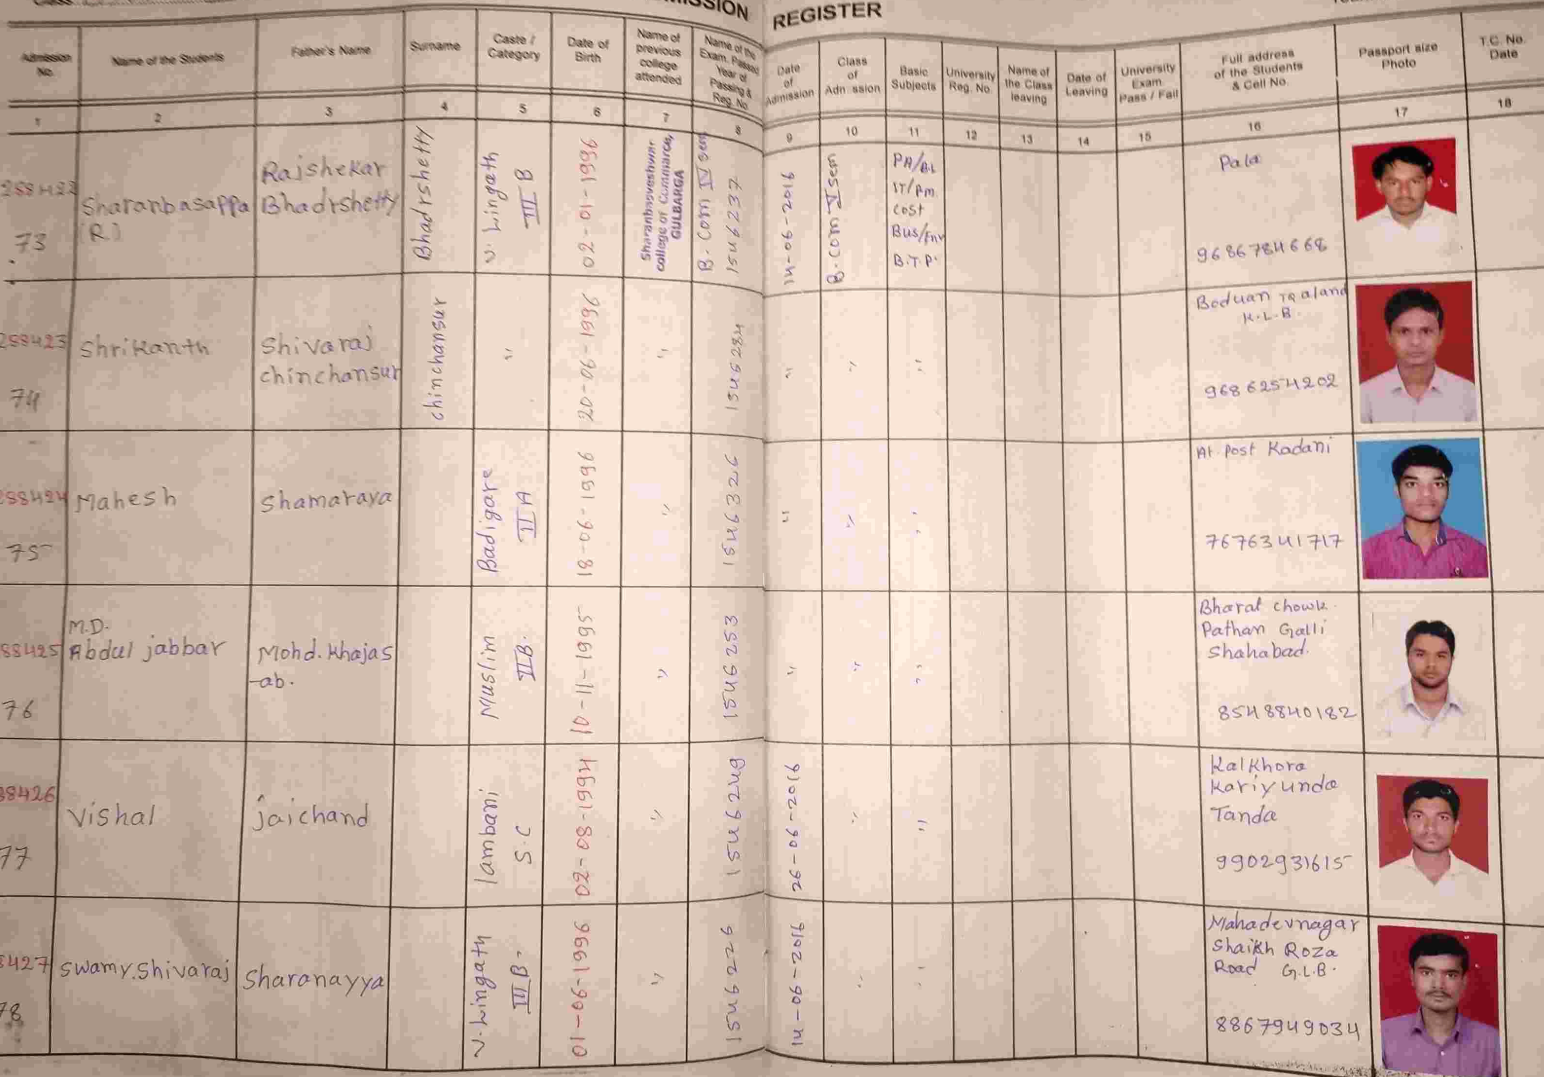 REGISTER
Admission No.
Name of the Students
Father's Name
Surname
Caste / Category
Date of Birth
Name of previous college attended
Name of the Exam. Passed Year of Passing & Reg. No.
Date of Admission
Class of Admission
Basic Subjects
University Reg. No.
Name of the Class leaving
Date of Leaving
University Exam. Pass / Fail
Full address of the Students & Cell No.
Passport size Photo
T.C. No. Date
1 2 3 4 5 6 7 8 9 10 11 12 13 14 15 16 17 18
73
Sharanbasappa (R)
Rajshekar Bhadrshetty
Bhadrshetty
V. Lingath III B
02-01-1996
Sharanbasveshwar college of Commerce, GULBARGA
B. Com IV sem 15U6237
14-06-2016
B.com V sem
PA/
IT/
Cost
Bus/Env
B.T.P.
Pala
9686784668
288423
74
Shrikanth
Shivaraj chinchansur
chinchansur
"
20-06-1996
"
15U6284
"
"
"
K.L.B.
9686254202
288424
75
Mahesh
Shamaraya
Badigare II A
18-06-1996
"
15U6326
"
"
"
At Post Kadani
7676341717
88425
76
M.D. Abdul jabbar
Mohd. Khajas -ab.
Muslim II B.
10-11-1995
"
15U6253
"
"
"
Bharat chowk.
Pathan Galli
Shahabad.
8548840182
88426
77
Vishal
jaichand
lambani S.C
02-08-1994
"
15U6249
26-06-2016
"
"
Kalkhora
Kariyunda
Tanda
9902931615
8427
78
Swamy.Shivaraj
Sharanayya
V. Lingath III B.
01-06-1996
"
15U6226
14-06-2016
"
"
Mahadevnagar
Shaikh Roza
Road G.L.B.
8867949034